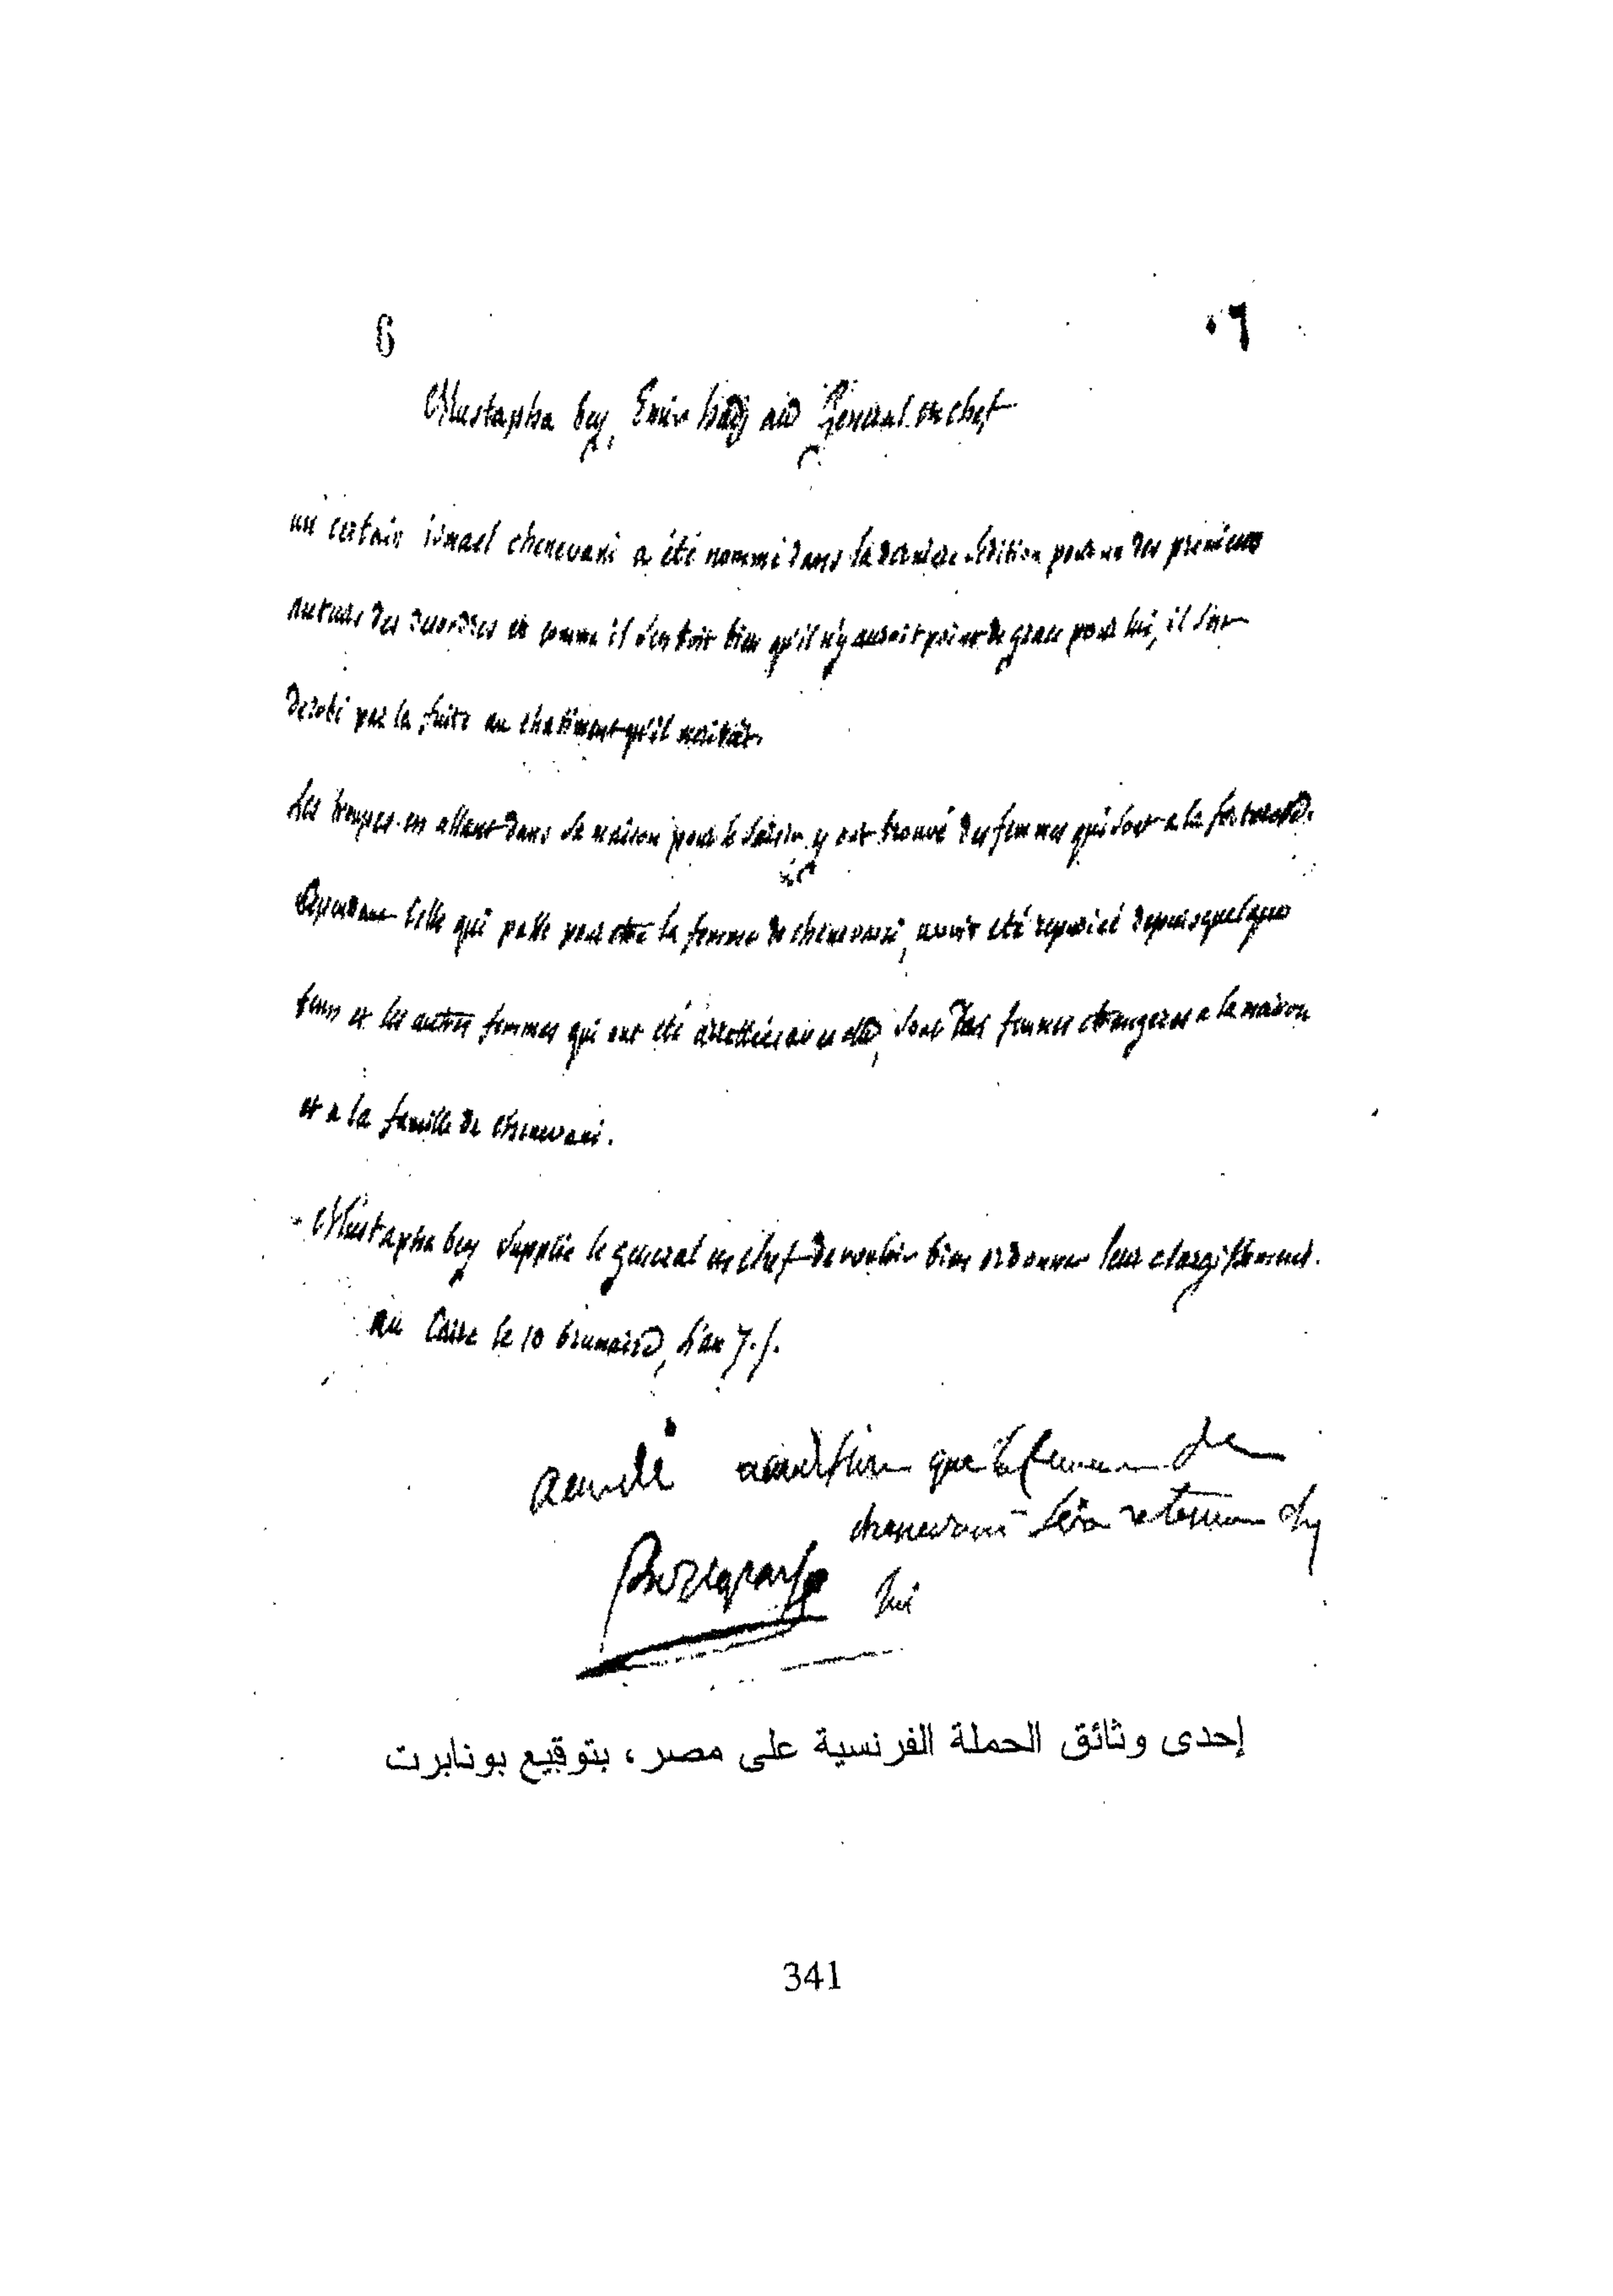 6
٠٦
Mustapha bey, Emir hadj au Général en chef
un certain ismael chenevani a été nommé dans la derniere sédition pour un des premiers
auteurs des desordres et comme il sentoit bien qu'il n'y auroit point de grace pour lui, il s'est
derobé par la fuite au chatiment qu'il meritoit.
Les troupes en allant dans sa maison pour le saisir y ont trouvé des femmes qui sont a la forteresse.
Cependant celle qui passe pour etre la femme de chenevani, avoit eté repudiée depuis quelque
tems et les autres femmes qui ont eté arrettées avec elle, sont des femmes etrangeres a la maison
et a la famille de chenevani.
Mustapha bey supplie le general en chef de vouloir bien ordonner leur elargissement.
au Caire le 10 brumaire, l'an 7.
accordé a condition que la femme de
chenevani sera
Bonaparte
lui
إحدى وثائق الحملة الفرنسية على مصر ، بتوقيع بونابرت
341